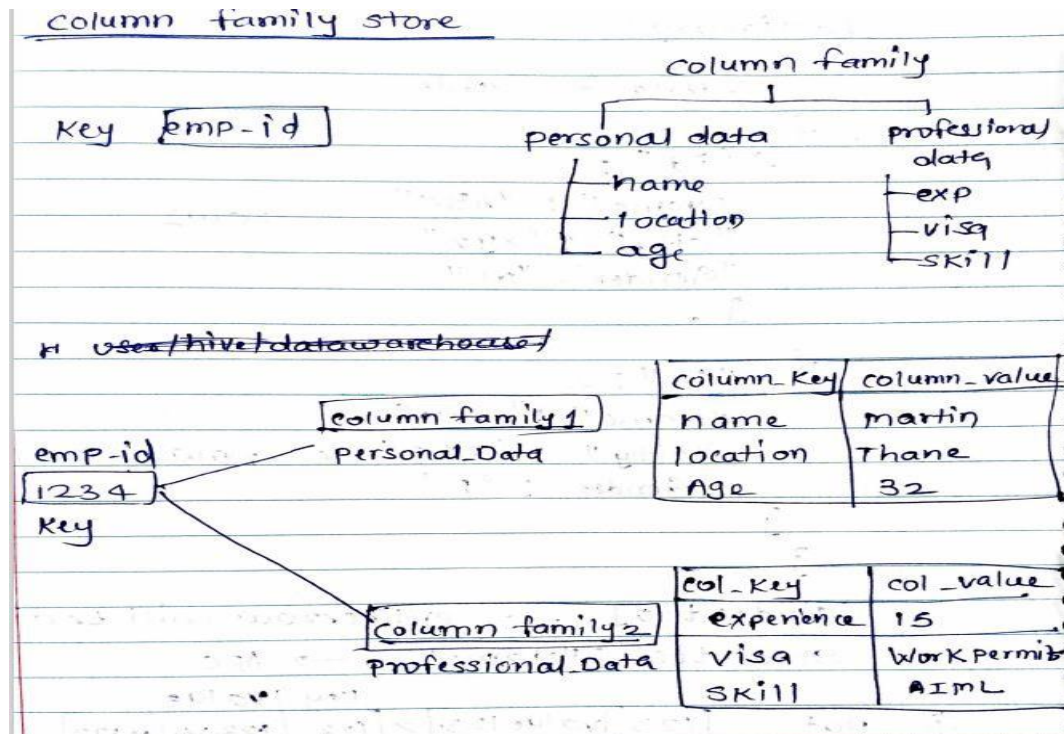 column family store
column family
Key emp-id
personal data
name
location
age
professional
data
exp
visa
skill
user/hive/datawarehouse/
emp-id
1234
Key
column family 1
personal_Data
column_Key column_value
name martin
location Thane
Age 32
column family 2
Professional_Data
col_Key col_value
experience 15
Visa Work permit
SKill AIML